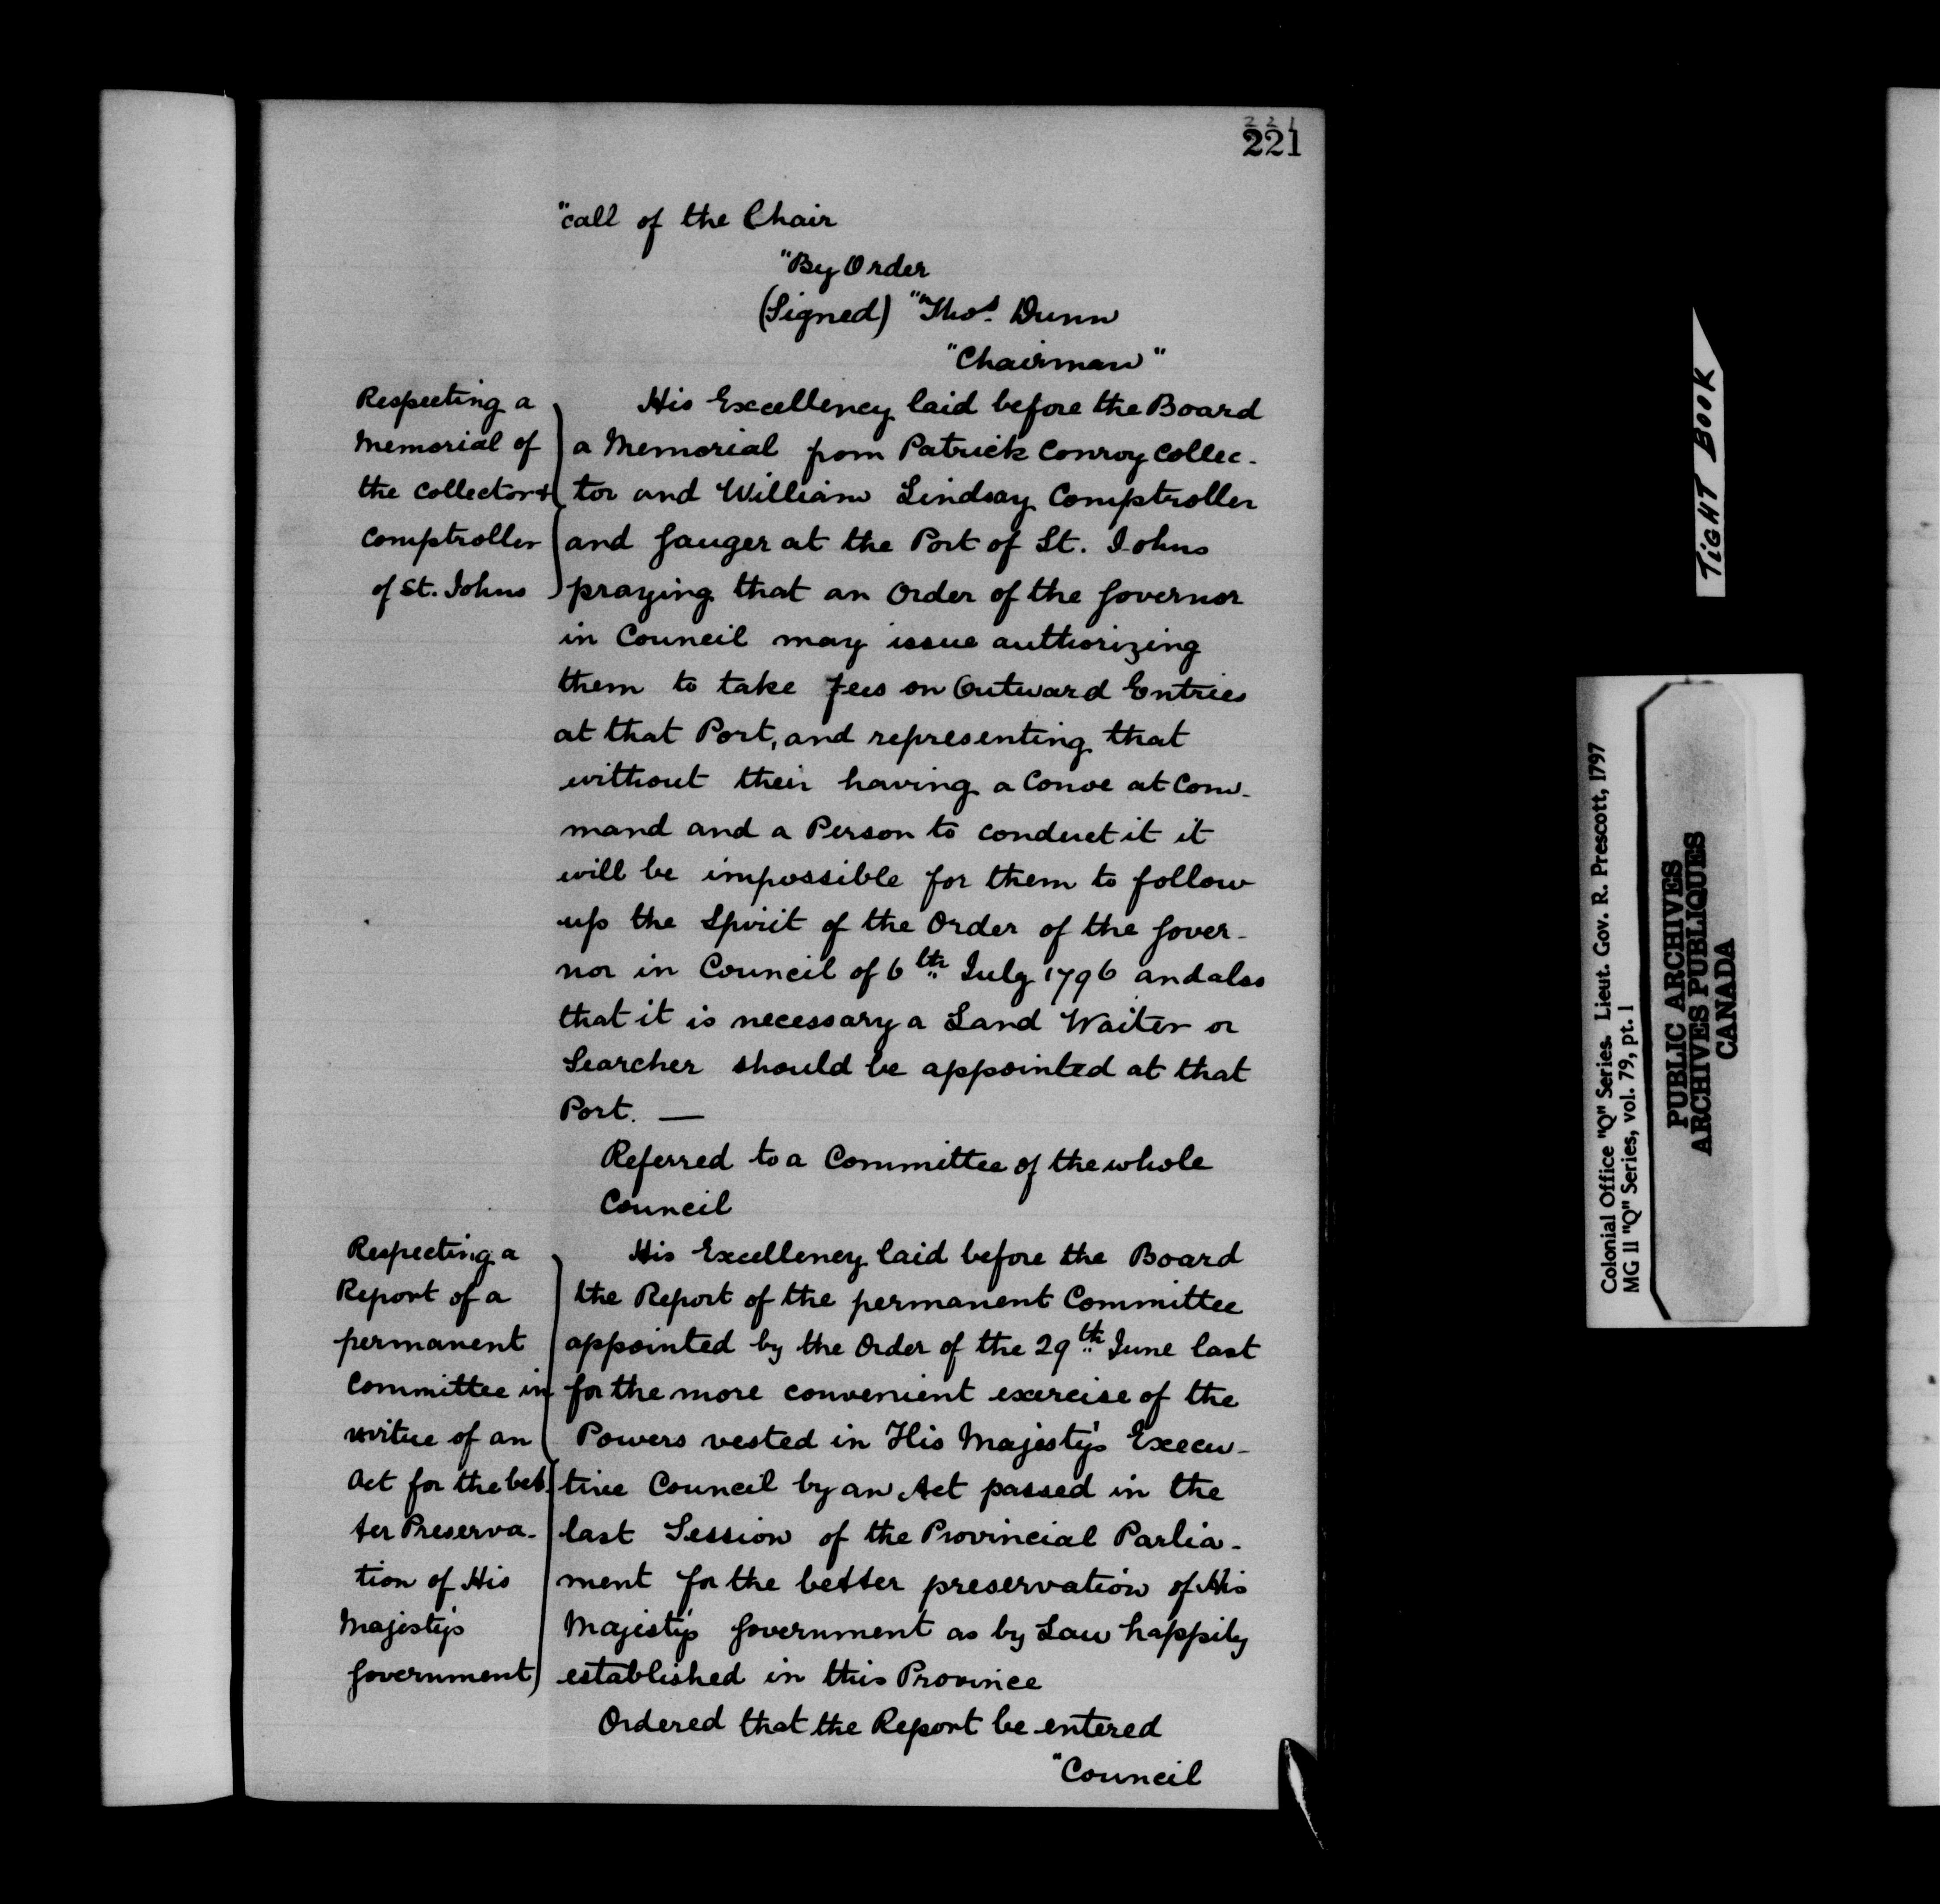 221
221
"call of the Chair
"By Order
(Signed) "Thos. Dunn
"Chairman"
Respecting a
Memorial of
the Collector &
Comptroller
of St. Johns
His Excellency laid before the Board
a Memorial from Patrick Conroy Collec-
tor and William Lindsay Comptroller
and Gauger at the Port of St. Johns
praying that an Order of the Governor
in Council may issue authorizing
them to take fees on Outward Entries
at that Port, and representing that
without their having a Conoe at Com-
mand and a Person to conduct it it
will be impossible for them to follow
up the Spirit of the Order of the Gover-
nor in Council of 6th July 1796 and also
that it is necessary a Land Waiter or
Searcher should be appointed at that
Port. —
Referred to a Committee of the whole
Council
Respecting a
Report of a
permanent
Committee in
virtue of an
Act for the bet-
ter Preserva-
tion of His
Majesty's
Government
His Excellency laid before the Board
the Report of the permanent Committee
appointed by the Order of the 29th June last
for the more convenient exercise of the
Powers vested in His Majesty's Execu-
tive Council by an Act passed in the
last Session of the Provincial Parlia-
ment for the better preservation of His
Majesty's Government as by Law happily
established in this Province
Ordered that the Report be entered
"Council
TIGHT BOOK
Colonial Office "Q" Series. Lieut. Gov. R. Prescott, 1797
MG 11 "Q" Series, vol. 79, pt. 1
PUBLIC ARCHIVES
ARCHIVES PUBLIQUES
CANADA